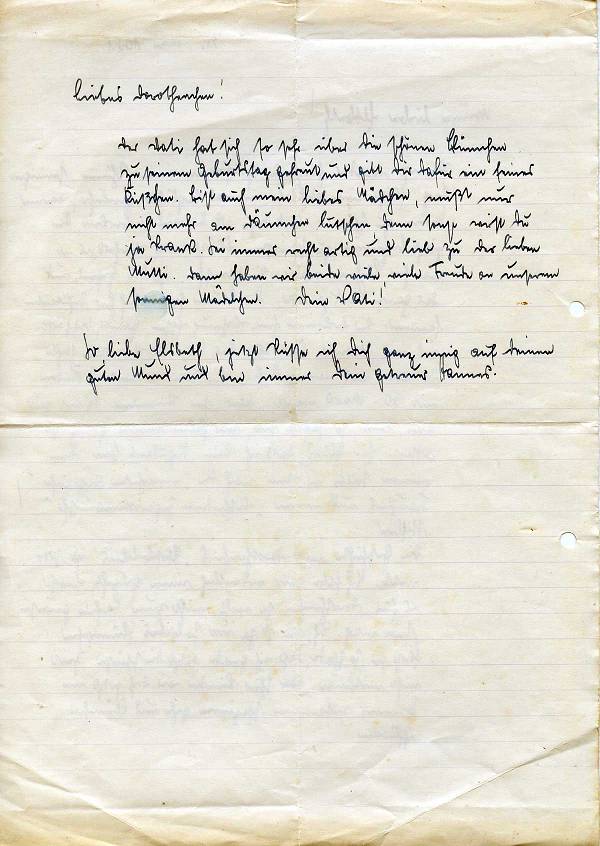 Liebes Dorothenchen!
Der Vati hat sich so sehr über die schönen Blümchen
zu seinem Geburtstag gefreut und gibt Dir dafür ein feines
Küßchen. Bist auch mein liebes Mädchen, mußt nur
nicht mehr am Däumchen lutschen denn sonst wirst Du
ja krank. Sei immer recht artig und lieb zu der lieben
Mutti. Dann haben wir beide viele viele Freude an unserem
Mädelchen. Dein Vati!
So liebe Elsbeth, jetzt küsse ich Dich ganz innig auf Deinen
guten Mund und bin immer Dein getreuer Hannes.